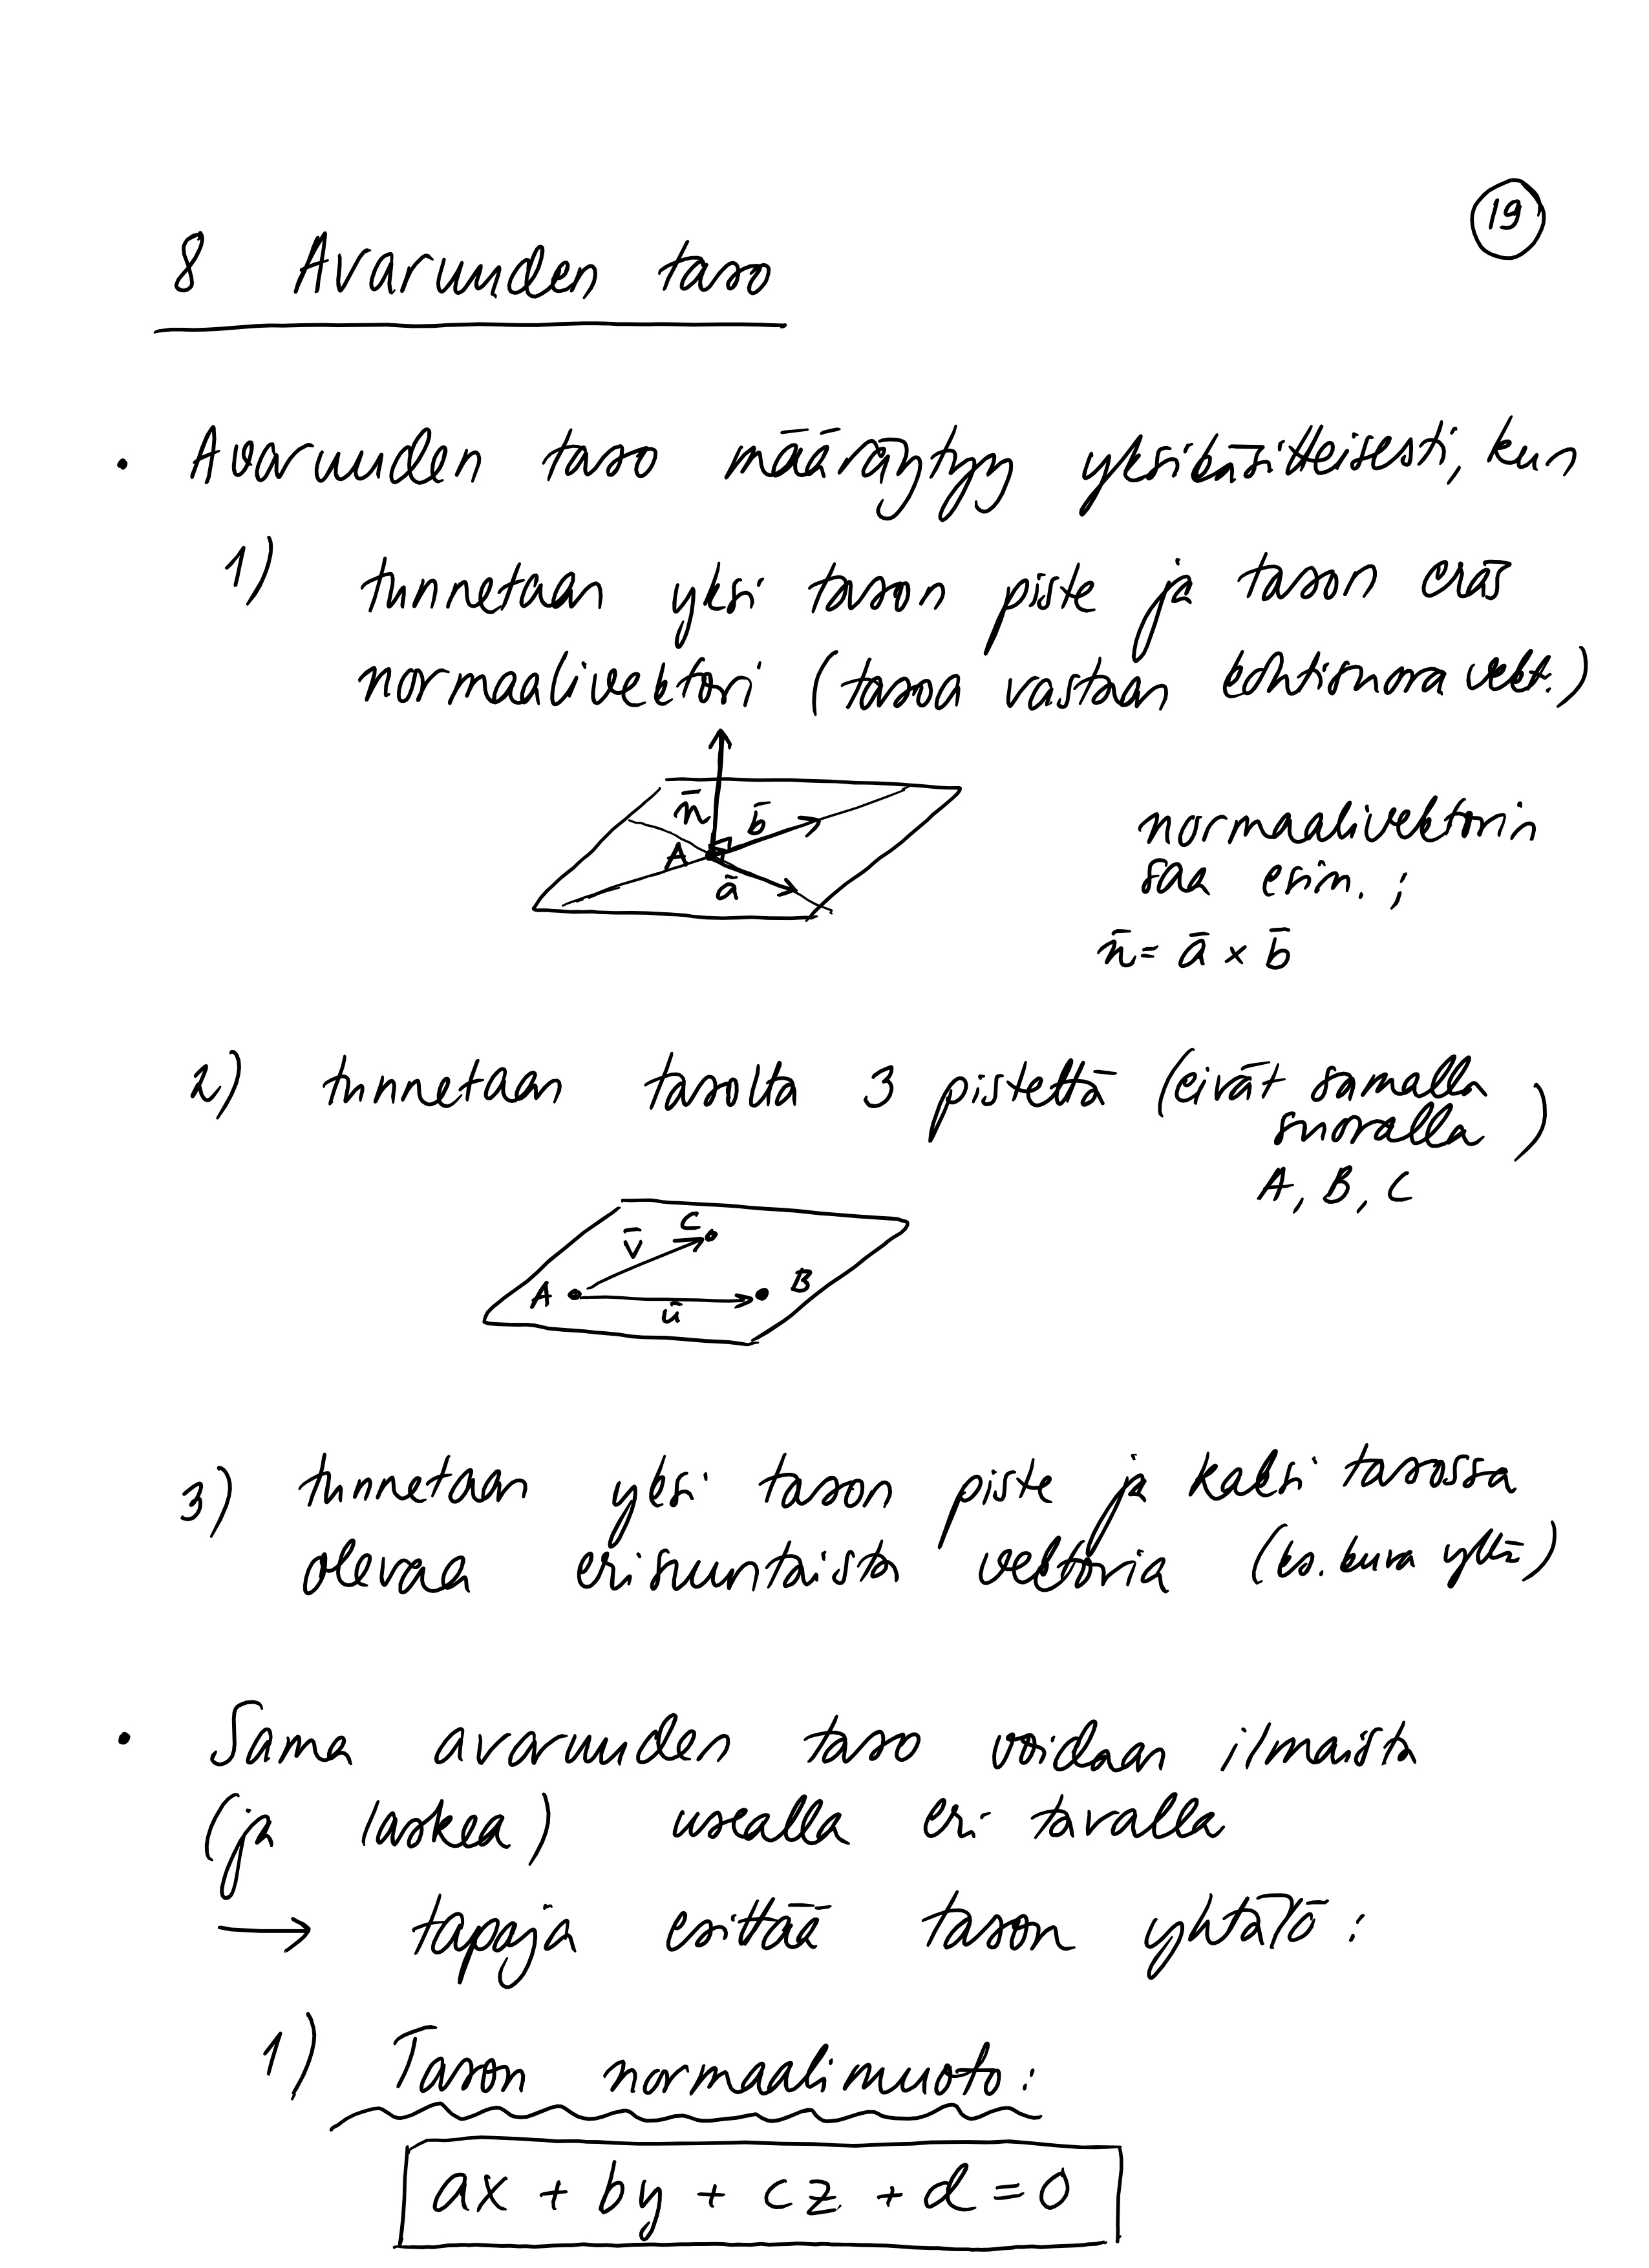 19
8 Avaruuden taso
• Avaruuden taso määräytyy yksikäsitteisesti, kun
1) tunnetaan yksi tason piste ja tason eräs
normaalivektori (tasoa vastaan kohtisuora vekt.)
n̄
b̄
A
ā
normaalivektorin
saa esim. ;
n̄ = ā × b̄
2) tunnetaan tasolta 3 pistettä (eivät samalla
suoralla)
A, B, C
C
v̄
A
B
ū
3) tunnetaan yksi tason piste ja kaksi tasossa
olevaa erisuuntaista vektoria (ks. kuva yllä)
• Sama avaruuden taso voidaan ilmaista
(ja laskea) usealla eri tavalla
→ tapoja esittää tason yhtälö :
1) Tason normaalimuoto :
ax + by + cz + d = 0